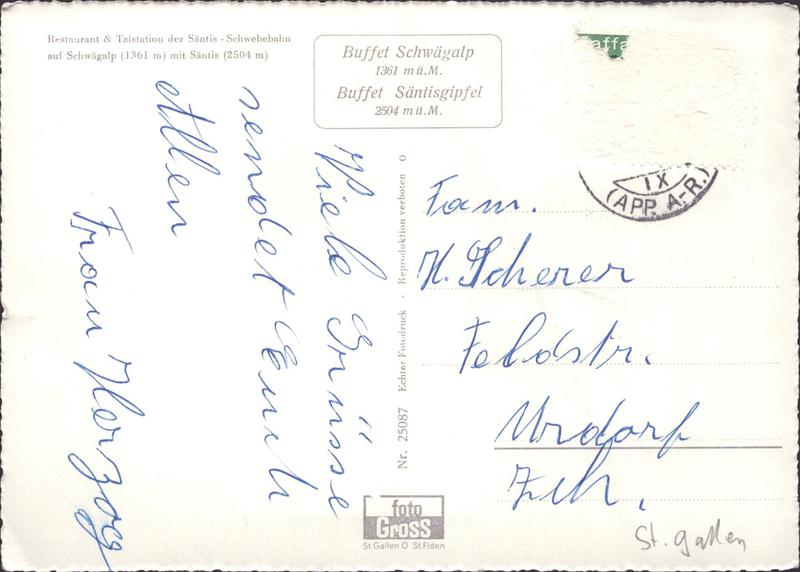 Restaurant & Talstation der Säntis - Schwebebahn
auf Schwägalp (1361 m) mit Säntis (2504 m)
Buffet Schwägalp
1361 m ü. M.
Buffet Säntisgipfel
2504 m ü. M.
Viele Grüsse
sendet Euch
Allen
Frau Herzog
Nr. 25087 Echter Fotodruck · Reproduktion verboten o
IX
(APP. A.-R.)
Fam.
H. Scherer
Feldstr.
Urdorf
Zch.
foto
Gross
St Gallen O St. Fiden
St. gallen